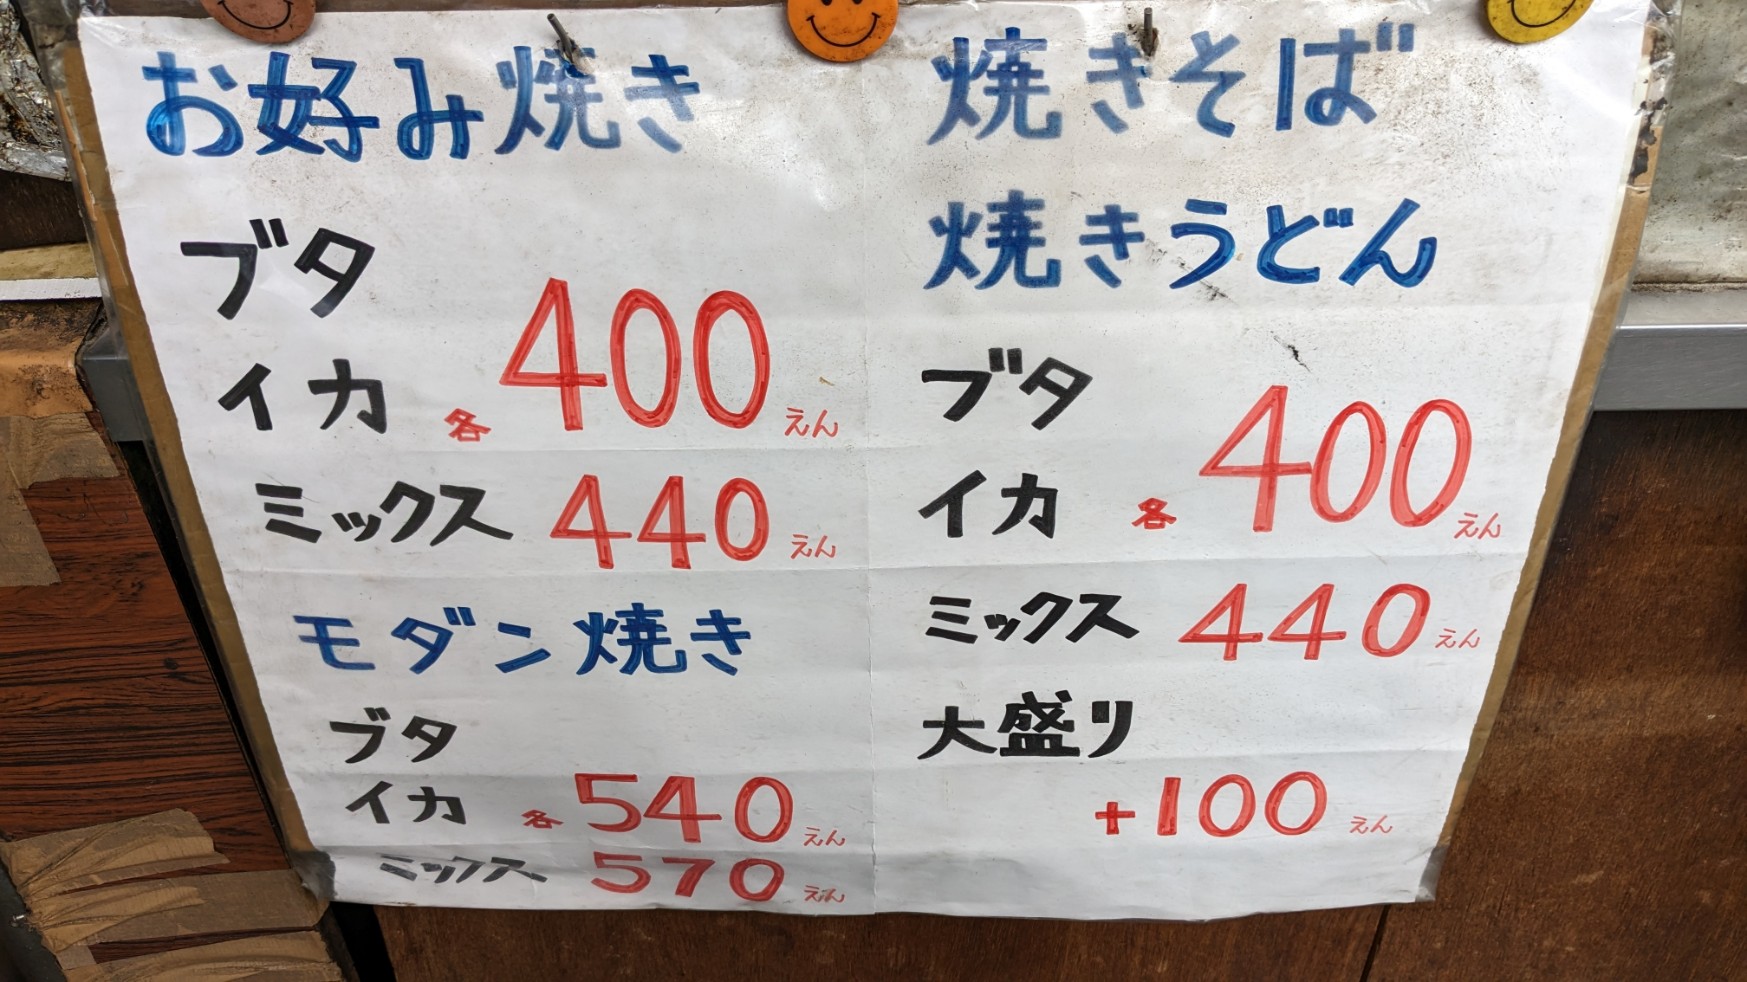 お好み焼き
ブタ
イカ 各400えん
ミックス 440えん
モダン焼き
ブタ
イカ 各540えん
ミックス 570えん
焼きそば
焼きうどん
ブタ
イカ 各400えん
ミックス 440えん
大盛り
+100えん